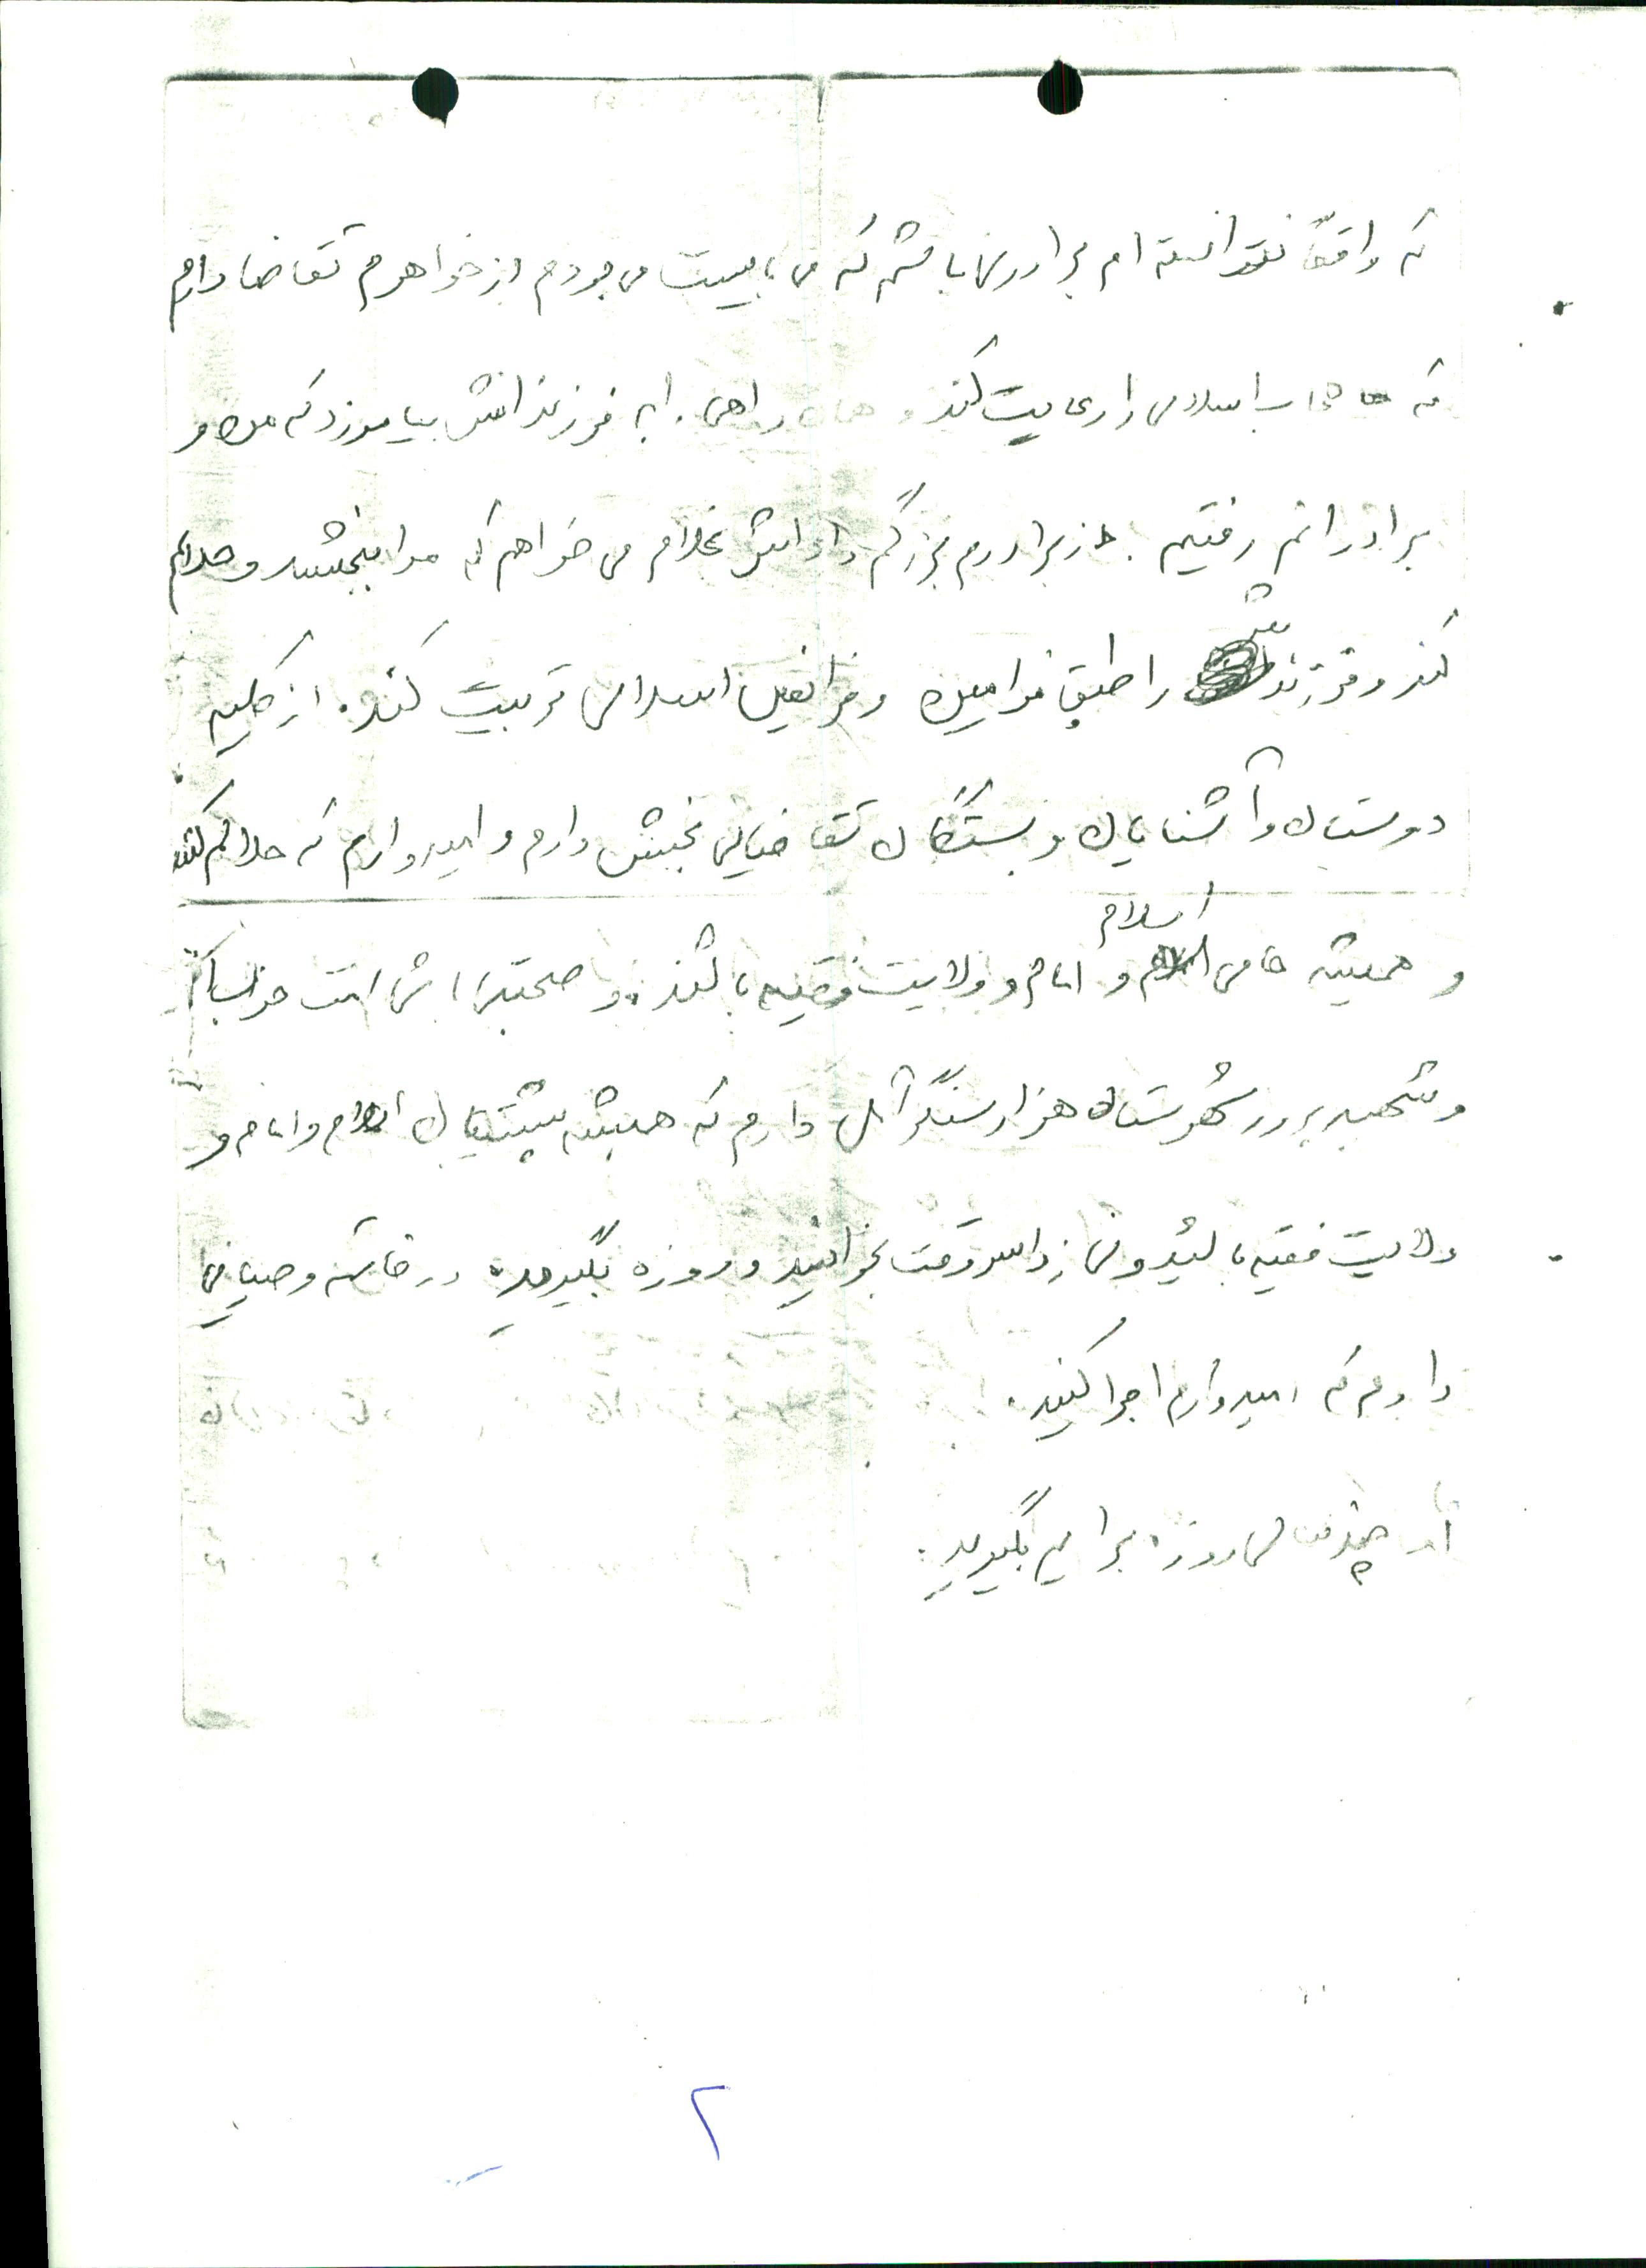 که واقعاً نتوانسته ام برادری باشم که می بایست می بودم از خواهرم تقاضا دارم
که حجاب اسلامی را رعایت کند و همان راهی را به فرزندانش بیاموزد که من و
برادرانم رفتیم. از برادرم بزرگم داداش غلام می خواهم که مرا ببخشد و حلالم
کند و فرزندش را طبق قوانین و فرائض اسلامی تربیت کند. از کلیه
دوستان و آشنایان و بستگان تقاضای بخشش دارم و امیدوارم که حلالم کنند
و همیشه حامی اسلام و امام و ولایت فقیه باشند. و صحبتی با شما امت حزب الله
و شهید پرور شهرستان هزار سنگر آمل دارم که همیشه پشتیبان اسلام و امام و
ولایت فقیه باشید و نماز را سر وقت بخوانید و روزه بگیرید. در خاتمه وصیتی
دارم که امیدوارم اجرا کنید.
روزه برایم بگیرید.
۲